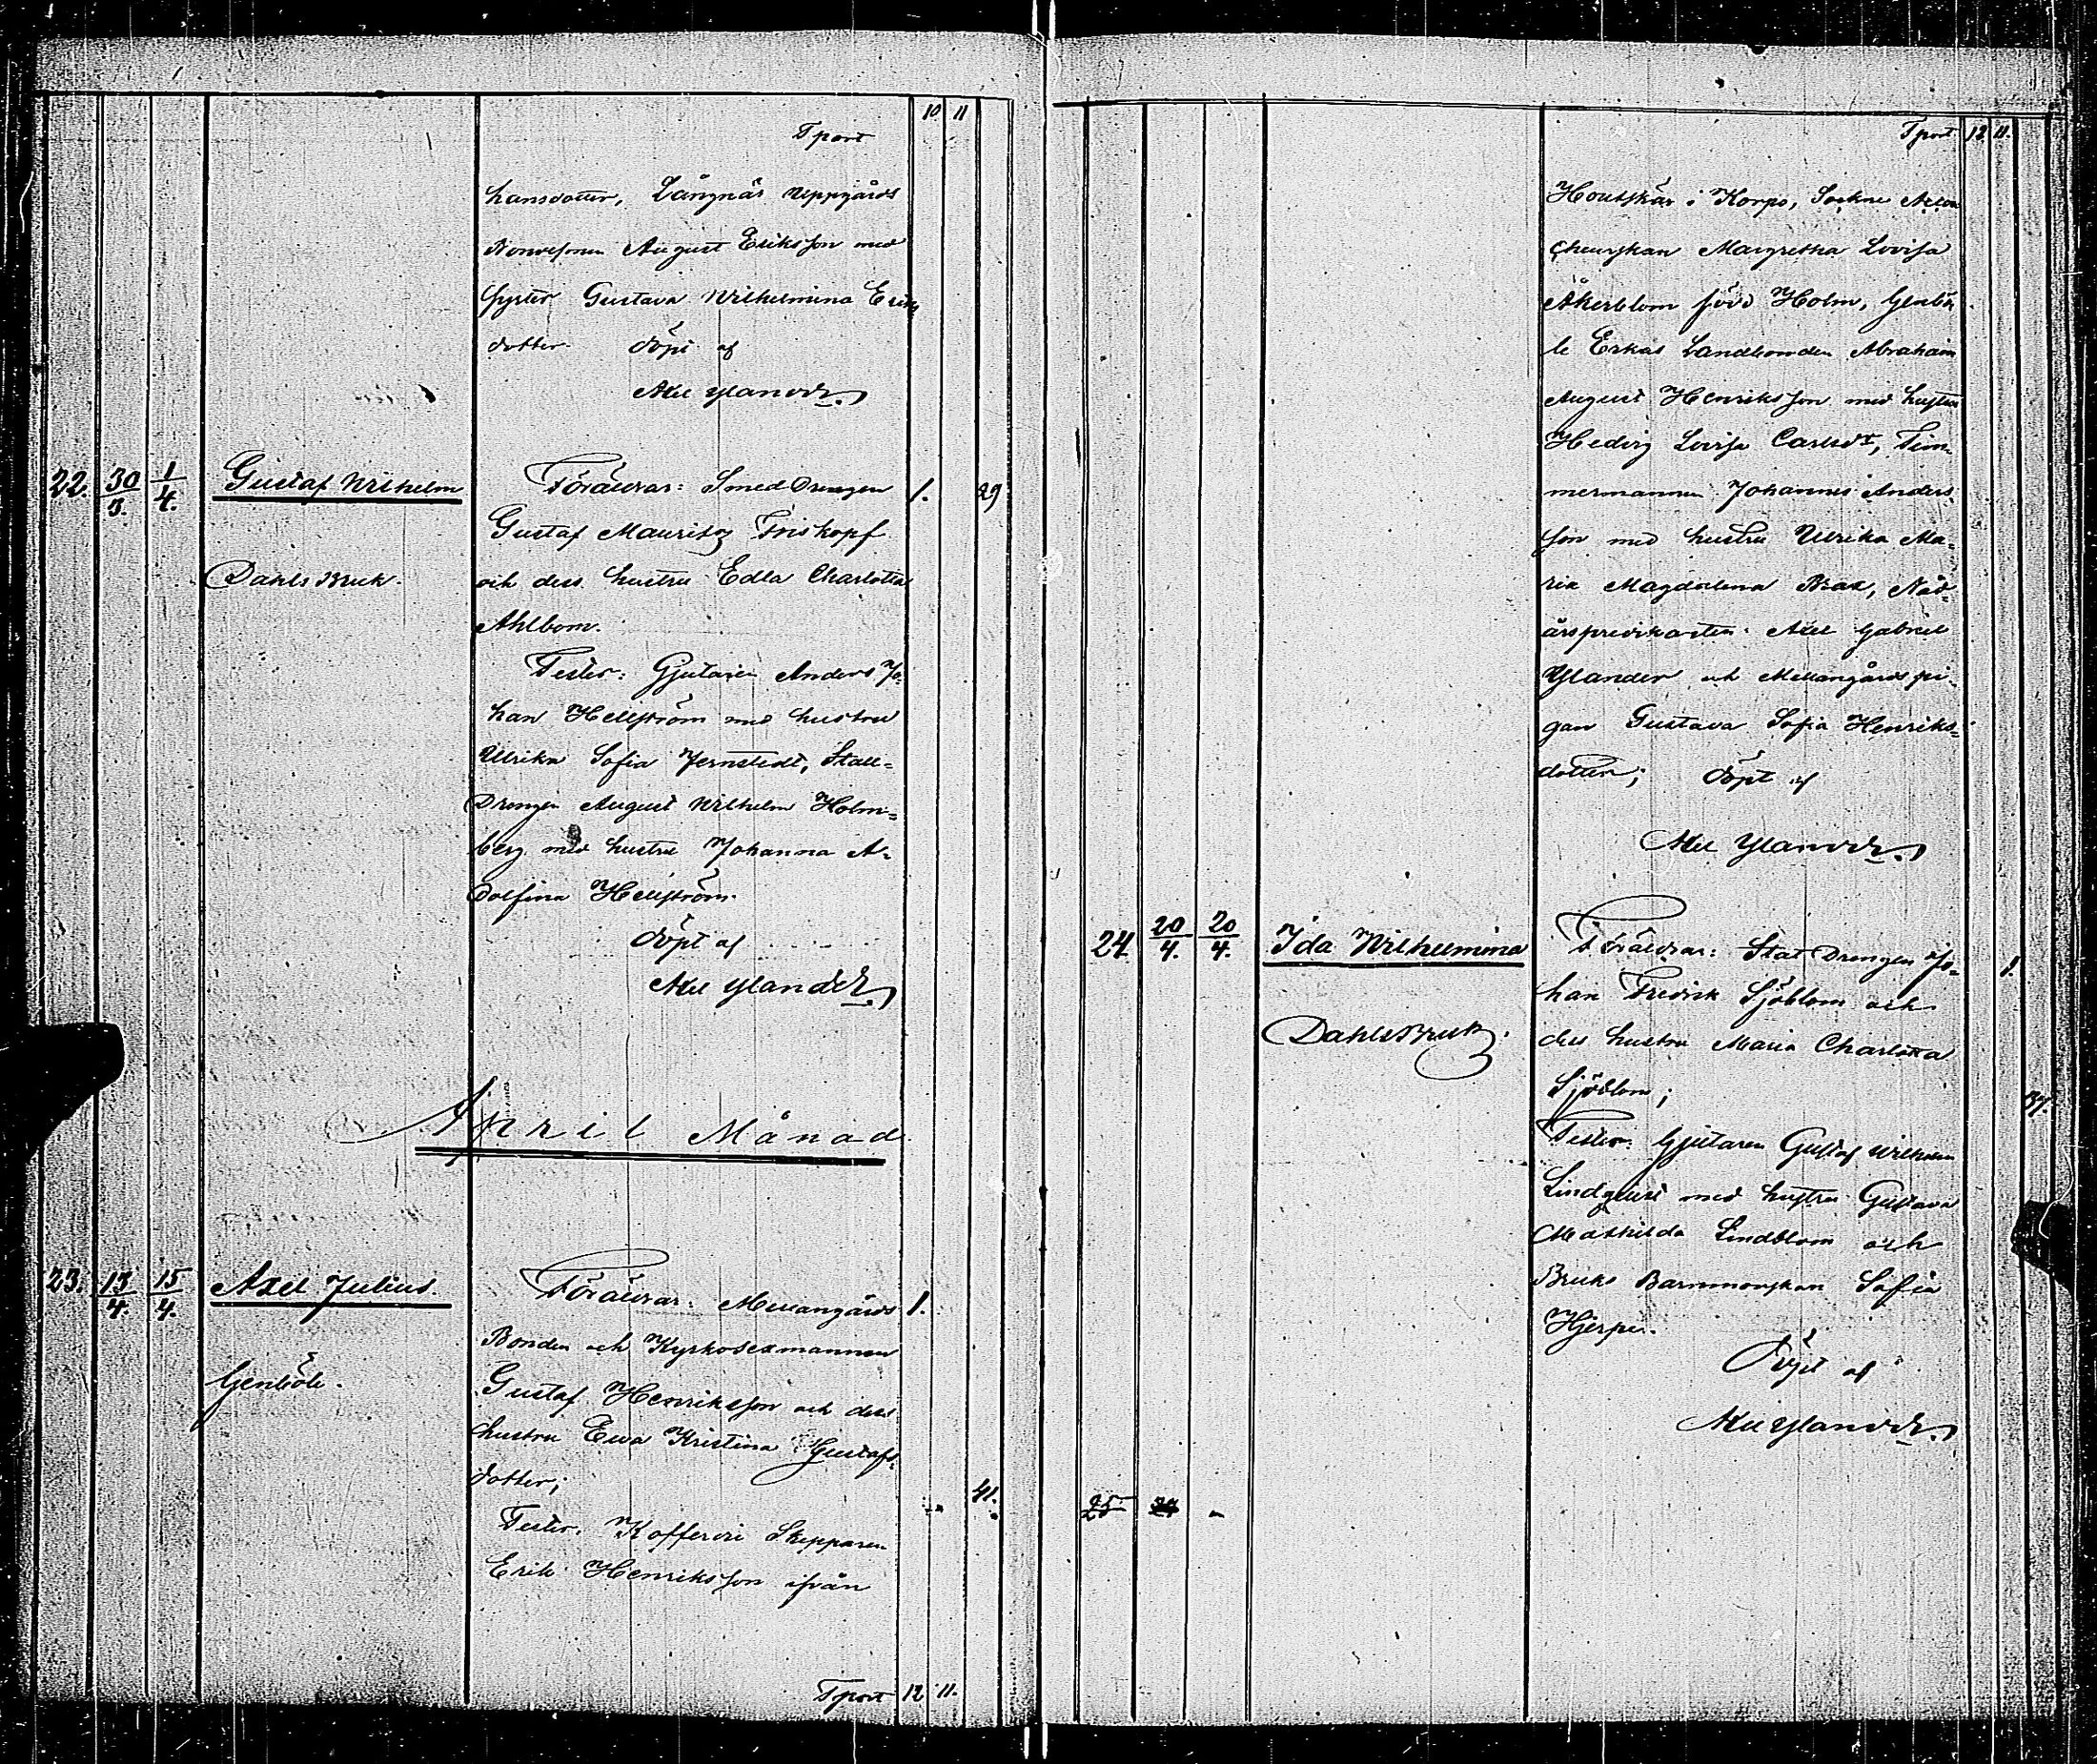 10 11
Tport
hansdotter, Långnäs Uppgårds
Bondesonen August Eriksson med
syster Gustava Wilhelmina Eriks
dotter. döpt af
Axel Ylander.
22. 30/3. 1/4. Gustaf Wilhelm Föräldrar: Smed Drengen 1. 29
Gustaf Mauritz Friskopf
Dahls Bruk. och dess hustru Edla Charlotta
Ahlbom.
Testes: Gjutaren Anders Jo-
han Hellström med hustru
Ulrika Sofia Jernstedt, Stall-
Drengen August Wilhelm Holm=
berg med hustru Johanna A-
dolfina Hellström.
döpt af
Axel Ylander.
April Månad.
23. 13/4. 15/4. Axel Julius. Föräldrar: Mellangårds 1.
Bonden och Kyrkosexmannen
Genböle. Gustaf Henriksson och dess
hustru Ewa Kristina Gustafs-
dotter; 41.
Testes: Kofferdi Skepparen
Erik Henriksson ifrån
Tport 12 11.
Tport 12 11.
Houtskär i Korpo, Sockne
Margretha Lovisa
Åkerblom född Holm, Genbö
le Erkas Landbonden Abraham
August Henriksson med hustru
Hedvig Lovisa Carlsdr, Tim-
mermannen Johannes Anders
son med hustru Ulrika Ma-
ria Magdalena Brax, Nåd-
årspredikanten Axel Gabriel
Ylander och Mellangårds pi-
gan Gustava Sofia Henriks-
dotter; döpt af
Axel Ylander.
24 20/4. 20/4. Ida Wilhelmina Föräldrar: Stat Drengen Jo- 1.
han Fredrik Sjöblom och
Dahls Bruk. dess hustru Maria Charlotta
Sjöblom; 37.
Testes: Gjutaren Gustaf Wilhelm
Lindquist med hustru Gustava
Mathilda Lindblom och
Bruks Barnmorskan Sofia
Hjerpe.
Döpt af
Axel Ylander.
25